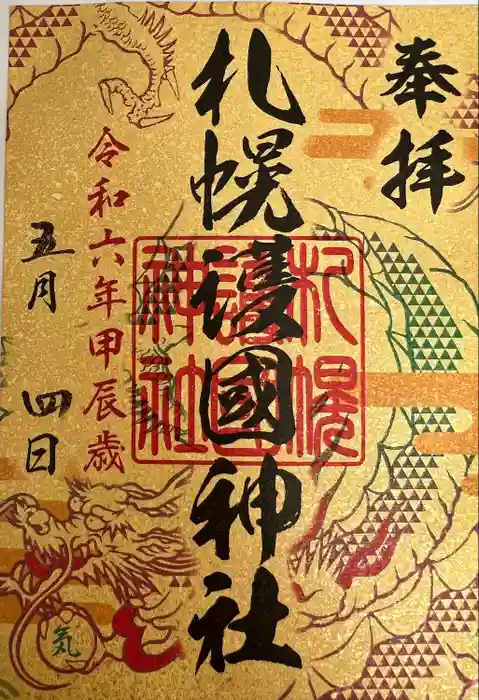 奉拝
札幌護國神社
札幌
護國
神社
令和六年甲辰歳
五月 四日
気